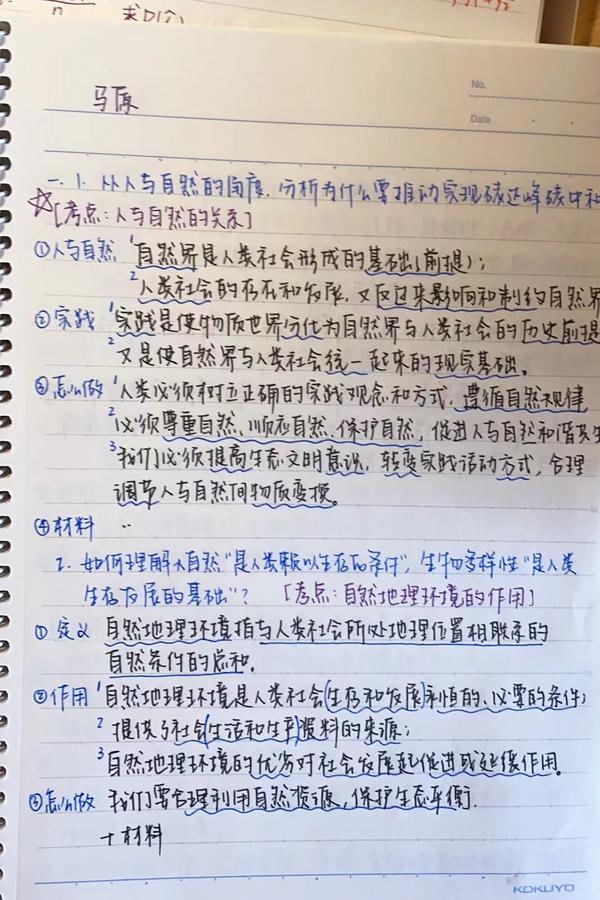 n 求D(个
No.
马原
Date
一. 1. 从人与自然的角度, 分析为什么要推动实现碳达峰碳中和
☆[考点:人与自然的关系]
①人与自然 ¹自然界是人类社会形成的基础(前提);
²人类社会的存在和发展,又反过来影响和制约自然界
②实践 ¹实践是使物质世界分化为自然界与人类社会的历史前提
²又是使自然界与人类社会统一起来的现实基础。
③怎么做 ¹人类必须树立正确的实践观念和方式,遵循自然规律
²必须尊重自然、顺应自然、保护自然,促进人与自然和谐共生
³我们必须提高生态文明意识,转变实践活动方式,合理
调节人与自然间物质变换。
④材料 ..
2. 如何理解大自然“是人类赖以生存的条件”,生物多样性“是人类
生存发展的基础”? [考点:自然地理环境的作用]
① 定义 自然地理环境指与人类社会所处地理位置相联系的
自然条件的总和.
②作用 ¹自然地理环境是人类社会(生存和发展)永恒的、必要的条件;
² 提供了社会(生活和生产)资料的来源;
³自然地理环境的优劣对社会发展起促进或延缓作用.
③怎么做 我们要合理利用自然资源,保护生态平衡.
+材料
KOKUYO